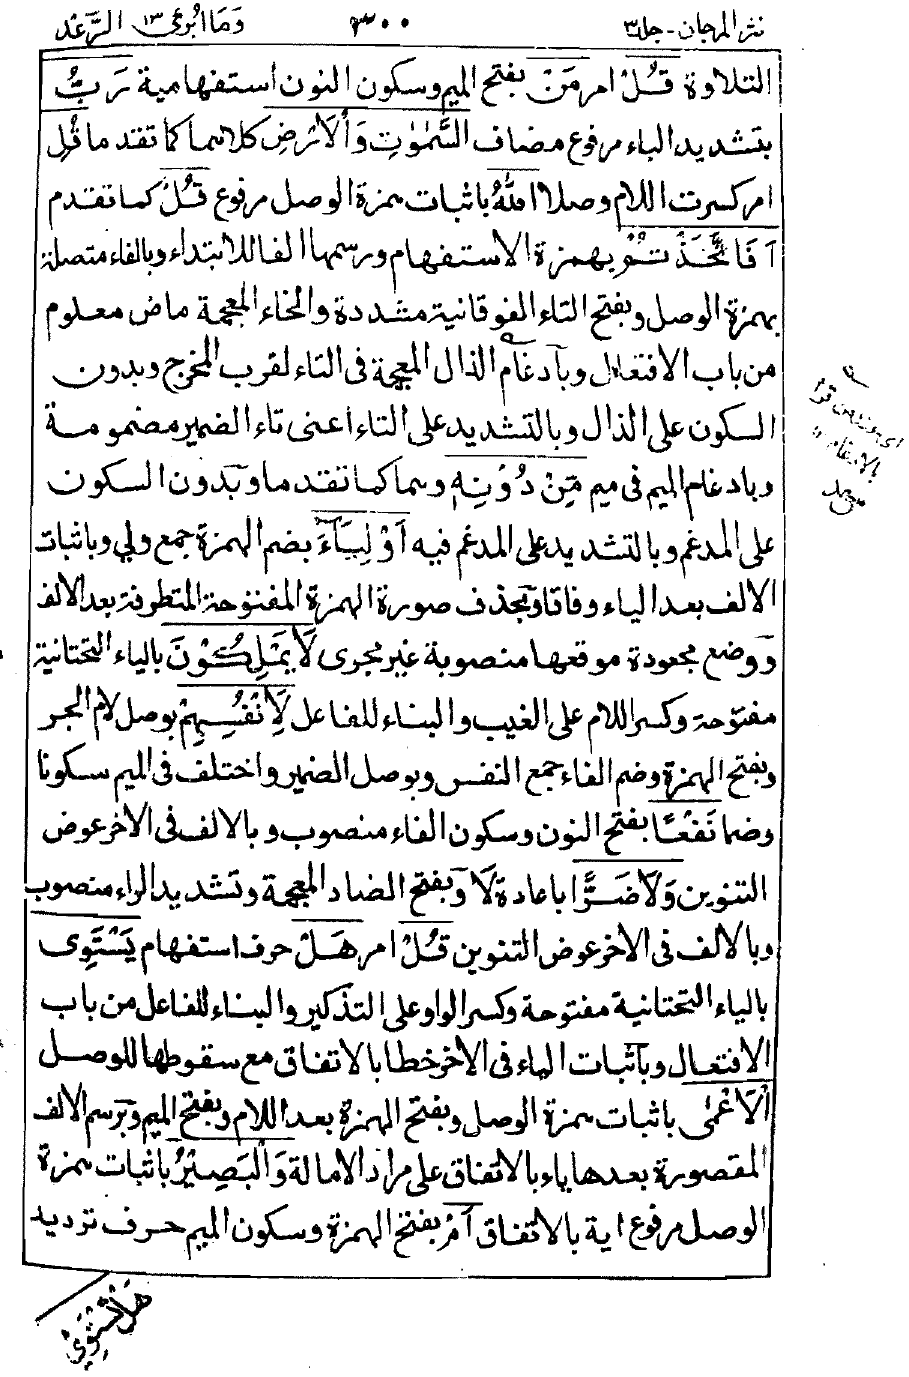 نثر المرجان - جلد ٣ ٣٠٠ وما ابرئ ١٣ الرَّعد
التلاوة قُلْ امر مَنْ بفتح الميم وسكون النون استفهامية رَبُّ
بتشديد الباء مرفوع مضاف السَّمٰوٰتِ وَالْاَرْضِ كلاهما كما تقدما قُلِ
امر كسرت اللام وصلا اللّٰهُ باثبات همزة الوصل مرفوع قُلْ كما تقدم
اَفَاتَّخَذْتُمْ بهمزة الاستفهام ورسمها الفا للابتداء وبالفاء متصلة
بهمزة الوصل وبفتح التاء الفوقانية مشددة والخاء المعجمة ماض معلوم
من باب الافتعال وبآدغام الذال المعجمة فى التاء لقرب المخرج وبدون
السكون على الذال وبالتشديد على التاء اعنى تاء الضمير مضمومة
وبادغام الميم فى ميم مِّنْ دُوْنِهٖ وهما كما تقدما وبدون السكون
على المدغم وبالتشديد على المدغم فيه اَوْلِيَآءَ بضم الهمزة جمع ولي وباثبات
الالف بعد الياء وفاقا وبحذف صورة الهمزة المفتوحة المتطرفة بعد الالف
ووضع مجعودة موقعها منصوبة غير مجرى لَا يَمْلِكُوْنَ بالياء التحتانية
مفتوحة وكسر اللام على الغيب والبناء للفاعل لِاَنْفُسِهِمْ بوصل لام الجر
وبفتح الهمزة وضم الفاء جمع النفس وبوصل الضمير واختلف فى الميم سكونا
وضما نَفْعًا بفتح النون وسكون الفاء منصوب وبالالف فى الاخر عوض
التنوين وَلَا ضَرًّا باعادة لَا وبفتح الضاد المعجمة وتشديد الراء منصوب
وبالالف فى الاخر عوض التنوين قُلْ امر هَلْ حرف استفهام يَسْتَوِى
بالياء التحتانية مفتوحة وكسر الواو على التذكير والبناء للفاعل من باب
الافتعال وباثبات الياء فى الاخر خطا بالاتفاق مع سقوطها للوصل
الْاَعْمٰى باثبات همزة الوصل وبفتح الهمزة بعد اللام وبفتح الميم وبرسم الالف
المقصورة بعدها ياء بالاتفاق على مراد الامالة وَالْبَصِيْرُ باثبات همزة
الوصل مرفوع اية بالاتفاق اَمْ بفتح الهمزة وسكون الميم حرف ترديد
هَلْ تَسْتَوِيْ